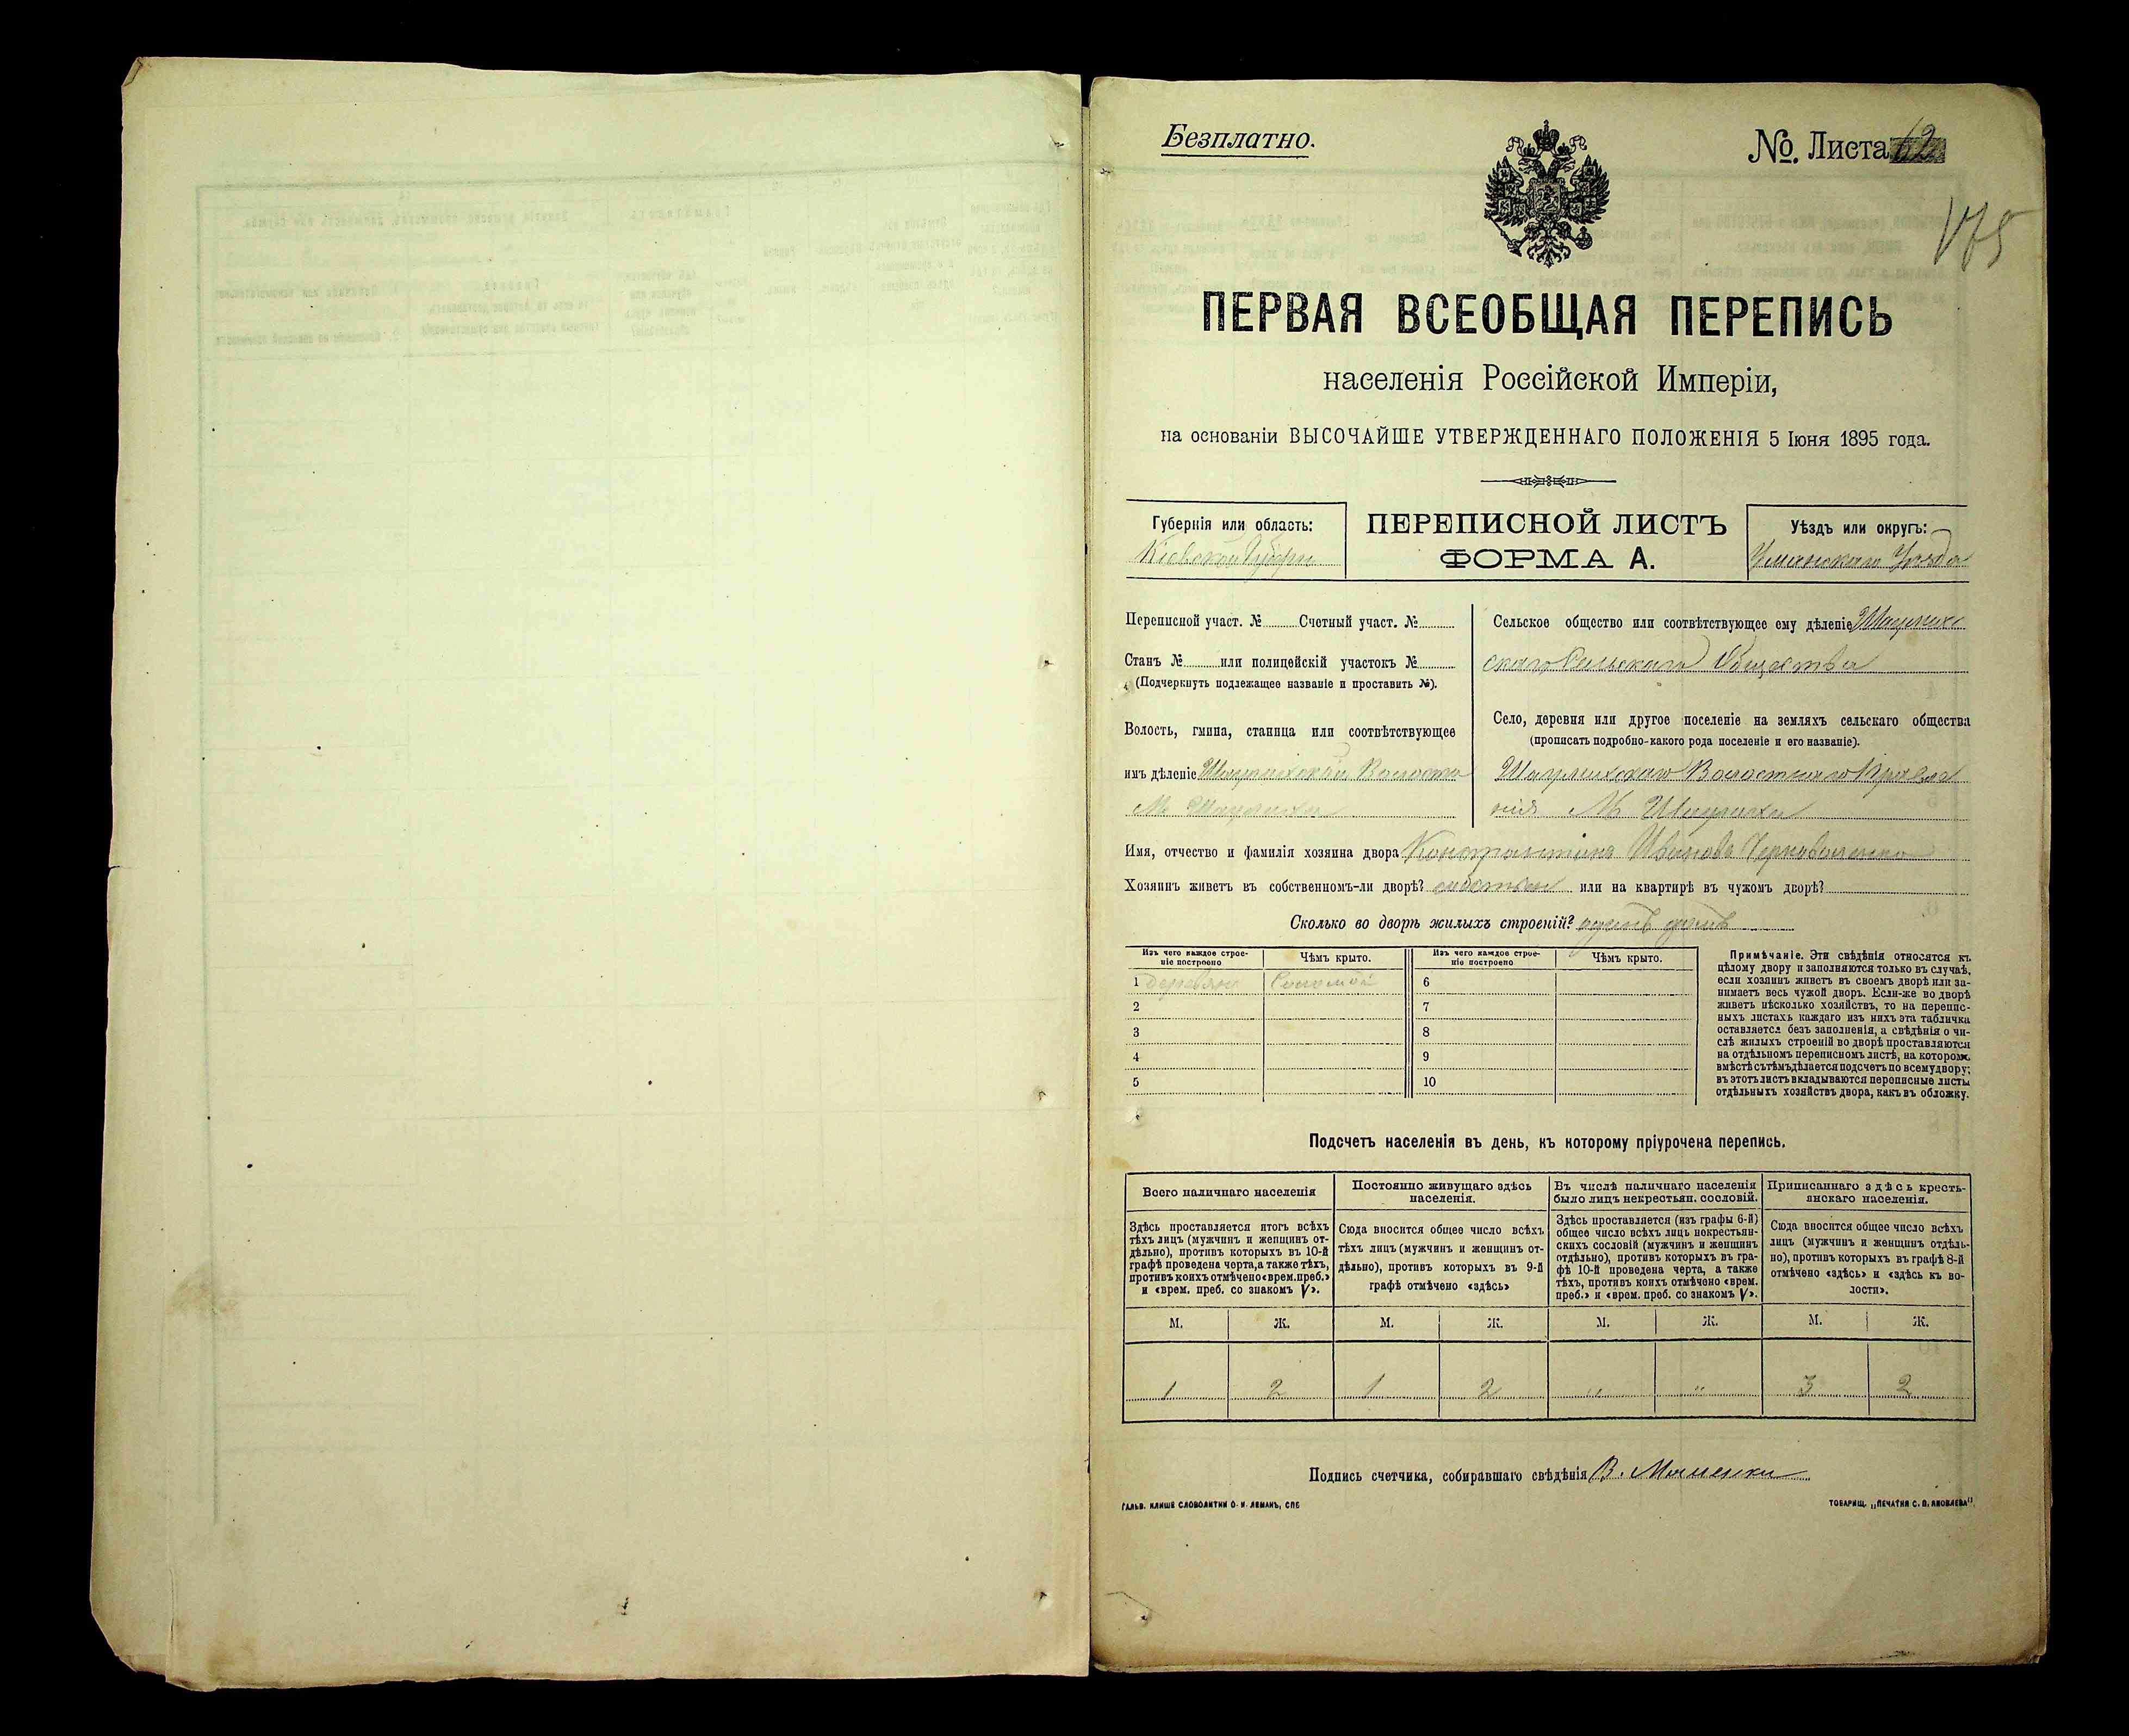 Безплатно.
№. Листа 62
175
ПЕРВАЯ ВСЕОБЩАЯ ПЕРЕПИСЬ
населенія Россійской Имперіи,
на основаніи ВЫСОЧАЙШЕ УТВЕРЖДЕННАГО ПОЛОЖЕНІЯ 5 Іюня 1895 года.
Губернія или область:
Кіевской Губерн
ПЕРЕПИСНОЙ ЛИСТЪ
ФОРМА А.
Уѣздъ или округъ:
Уманскаго Уѣзда
Переписной участ. № Счетный участ. №
Станъ № или полицейскій участокъ №
(Подчеркнуть подлежащее названіе и проставить №).
Волость, гмина, станица или соотвѣтствующее
имъ дѣленіе Шаулихской Волости
М. Шаулиха
Сельское общество или соотвѣтствующее ему дѣленіе Шаулих
скаго Сельскаго Общества
Село, деревня или другое поселеніе на земляхъ сельскаго общества
(прописать подробно-какого рода поселеніе и его названіе).
Шаулихскаго Волостнаго Правле
нія М. Шаулиха
Имя, отчество и фамилія хозяина двора Иванова
Хозяинъ живетъ въ собственномъ-ли дворѣ? или на квартирѣ въ чужомъ дворѣ?
Сколько во дворѣ жилыхъ строеній? одинъ домъ
Изъ чего каждое строеніе построено
Чѣмъ крыто.
Изъ чего каждое строеніе построено
Чѣмъ крыто.
1 деревян Соломой 6
2 7
3 8
4 9
5 10
Примѣчаніе. Эти свѣдѣнія относятся къ
цѣлому двору и заполняются только въ случаѣ,
если хозяинъ живетъ въ своемъ дворѣ или за-
нимаетъ весь чужой дворъ. Если-же во дворѣ
живетъ нѣсколько хозяйствъ, то на перепис-
ныхъ листахъ каждаго изъ нихъ эта табличка
оставляется безъ заполненія, а свѣдѣнія о чи-
слѣ жилыхъ строеній во дворѣ проставляются
на отдѣльномъ переписномъ листѣ, на которомъ
вмѣстѣ съ тѣмъ дѣлается подсчетъ по всему двору;
въ этотъ листъ вкладываются переписные листы
отдѣльныхъ хозяйствъ двора, какъ въ обложку.
Подсчетъ населенія въ день, къ которому пріурочена перепись.
Всего наличнаго населенія
Здѣсь проставляется итогъ всѣхъ
тѣхъ лицъ (мужчинъ и женщинъ от-
дѣльно), противъ которыхъ въ 10-й
графѣ проведена черта, а также тѣхъ,
противъ коихъ отмѣчено «врем. преб.»
и «врем. преб. со знакомъ V».
Постоянно живущаго здѣсь
населенія.
Сюда вносится общее число всѣхъ
тѣхъ лицъ (мужчинъ и женщинъ от-
дѣльно), противъ которыхъ въ 9-й
графѣ отмѣчено «здѣсь»
Въ числѣ наличнаго населенія
было лицъ некрестьян. сословій.
Здѣсь проставляется (изъ графы 6-й)
общее число всѣхъ лицъ некрестьян-
скихъ сословій (мужчинъ и женщинъ
отдѣльно), противъ которыхъ въ гра-
фѣ 10-й проведена черта, а также
тѣхъ, противъ коихъ отмѣчено «врем.
преб.» и «врем. преб. со знакомъ V».
Приписаннаго здѣсь кресть-
янскаго населенія.
Сюда вносится общее число всѣхъ
лицъ (мужчинъ и женщинъ отдѣль-
но), противъ которыхъ въ графѣ 8-й
отмѣчено «здѣсь» и «здѣсь къ во-
лости».
М. Ж. М. Ж. М. Ж. М. Ж.
1 2 1 2 " " 3 2
Подпись счетчика, собиравшаго свѣдѣнія В.
ГАЛЬВ. КЛИШЕ СЛОВОЛИТНИ О. И. ЛЕМАНЪ, СПБ
ТОВАРИЩ. „ПЕЧАТНЯ С. П. ЯКОВЛЕВА"